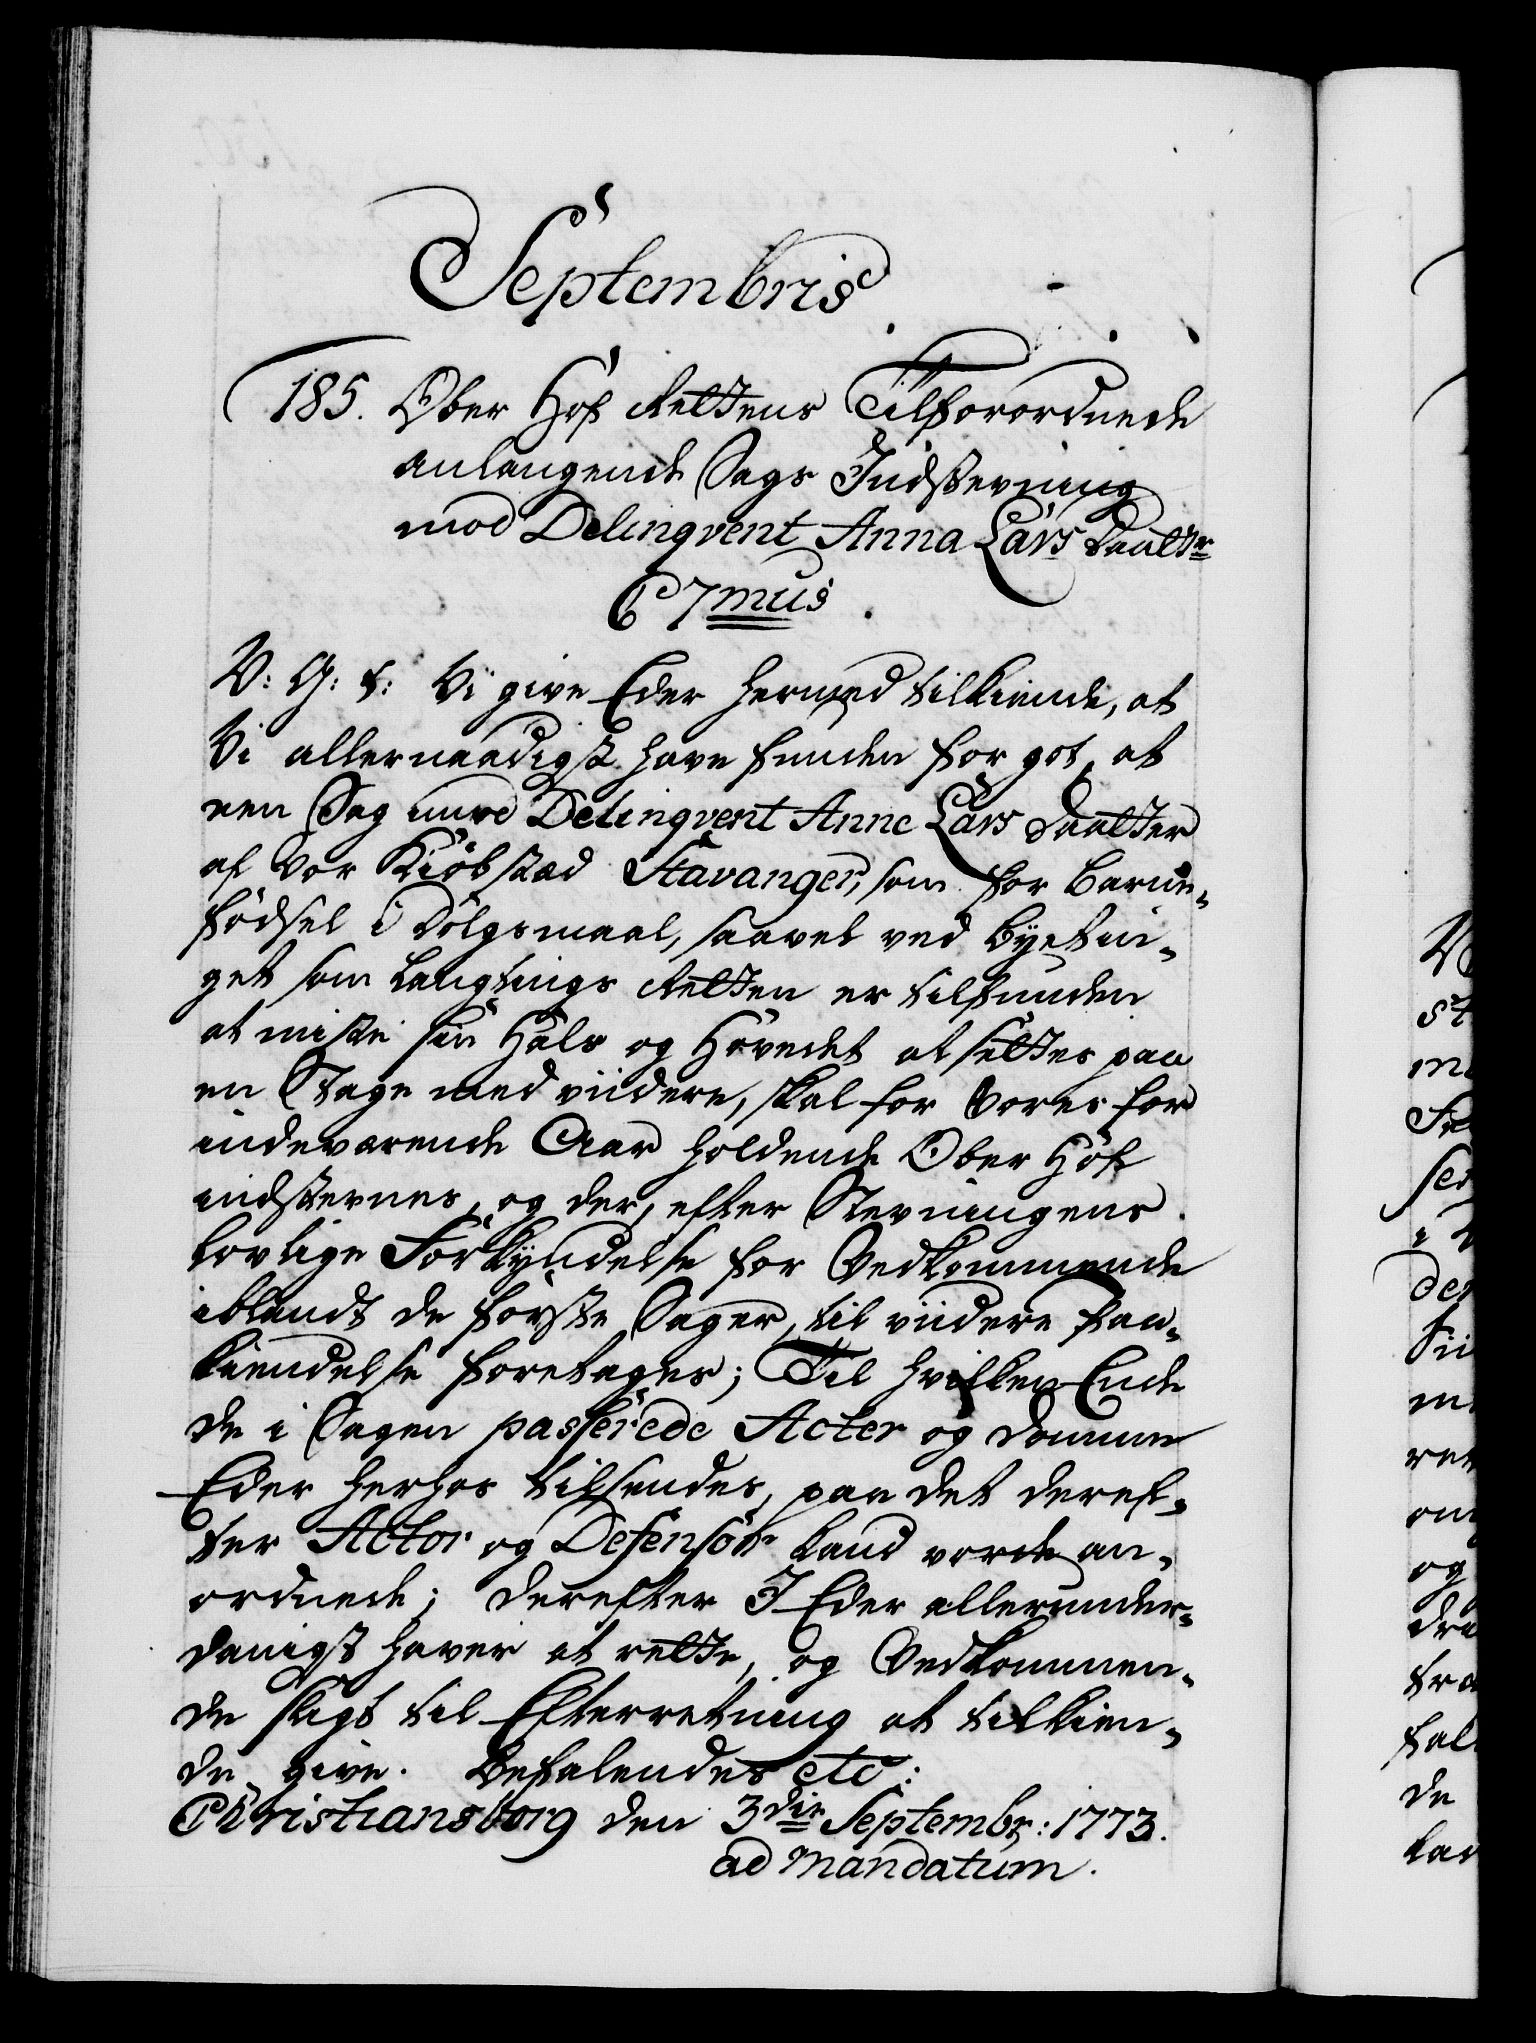 Septembris
185. Ober Hof Rettens Tilforordnede
anlangende Sags Indstevning
mod Delinqvent Anna Lars Daattr
C 7mus
V: G: T: Vi give Eder hermed tilkiende, at
Vi allernaadigst have funden for got, at
een Sag imod Delinqvent Anne Lars Daatter
af Vor Kiöbstæd Stavanger, som for Barne-
födsel i Dölgsmaal, saavel ved Byetin-
get som Laugtings Retten er tilfunden
at miste sin Hals og Hovedet at settes paa
en Stage med viidere, skal for Vores for
indeværende Aar holdende Ober Hof
indstevnes, og der, efter Stevningens
lovlige Forkyndelse for Vedkommende
iblandt de förste Sager, til viidere Paa-
kiendelse foretages; Til hvilken Ende
de i Sagen passerede Acter og Domme
Eder herhos tilsendes, paa det deref-
ter Actor og Defensor kand vorde an-
ordnede; Derefter I Eder allerunder-
danigst haver at rette, og Vedkommen-
de sligt til Efterretning at tilkien-
de give. Befalendes etc:
Christiansborg den 3die Septembr: 1773.
ad Mandatum.